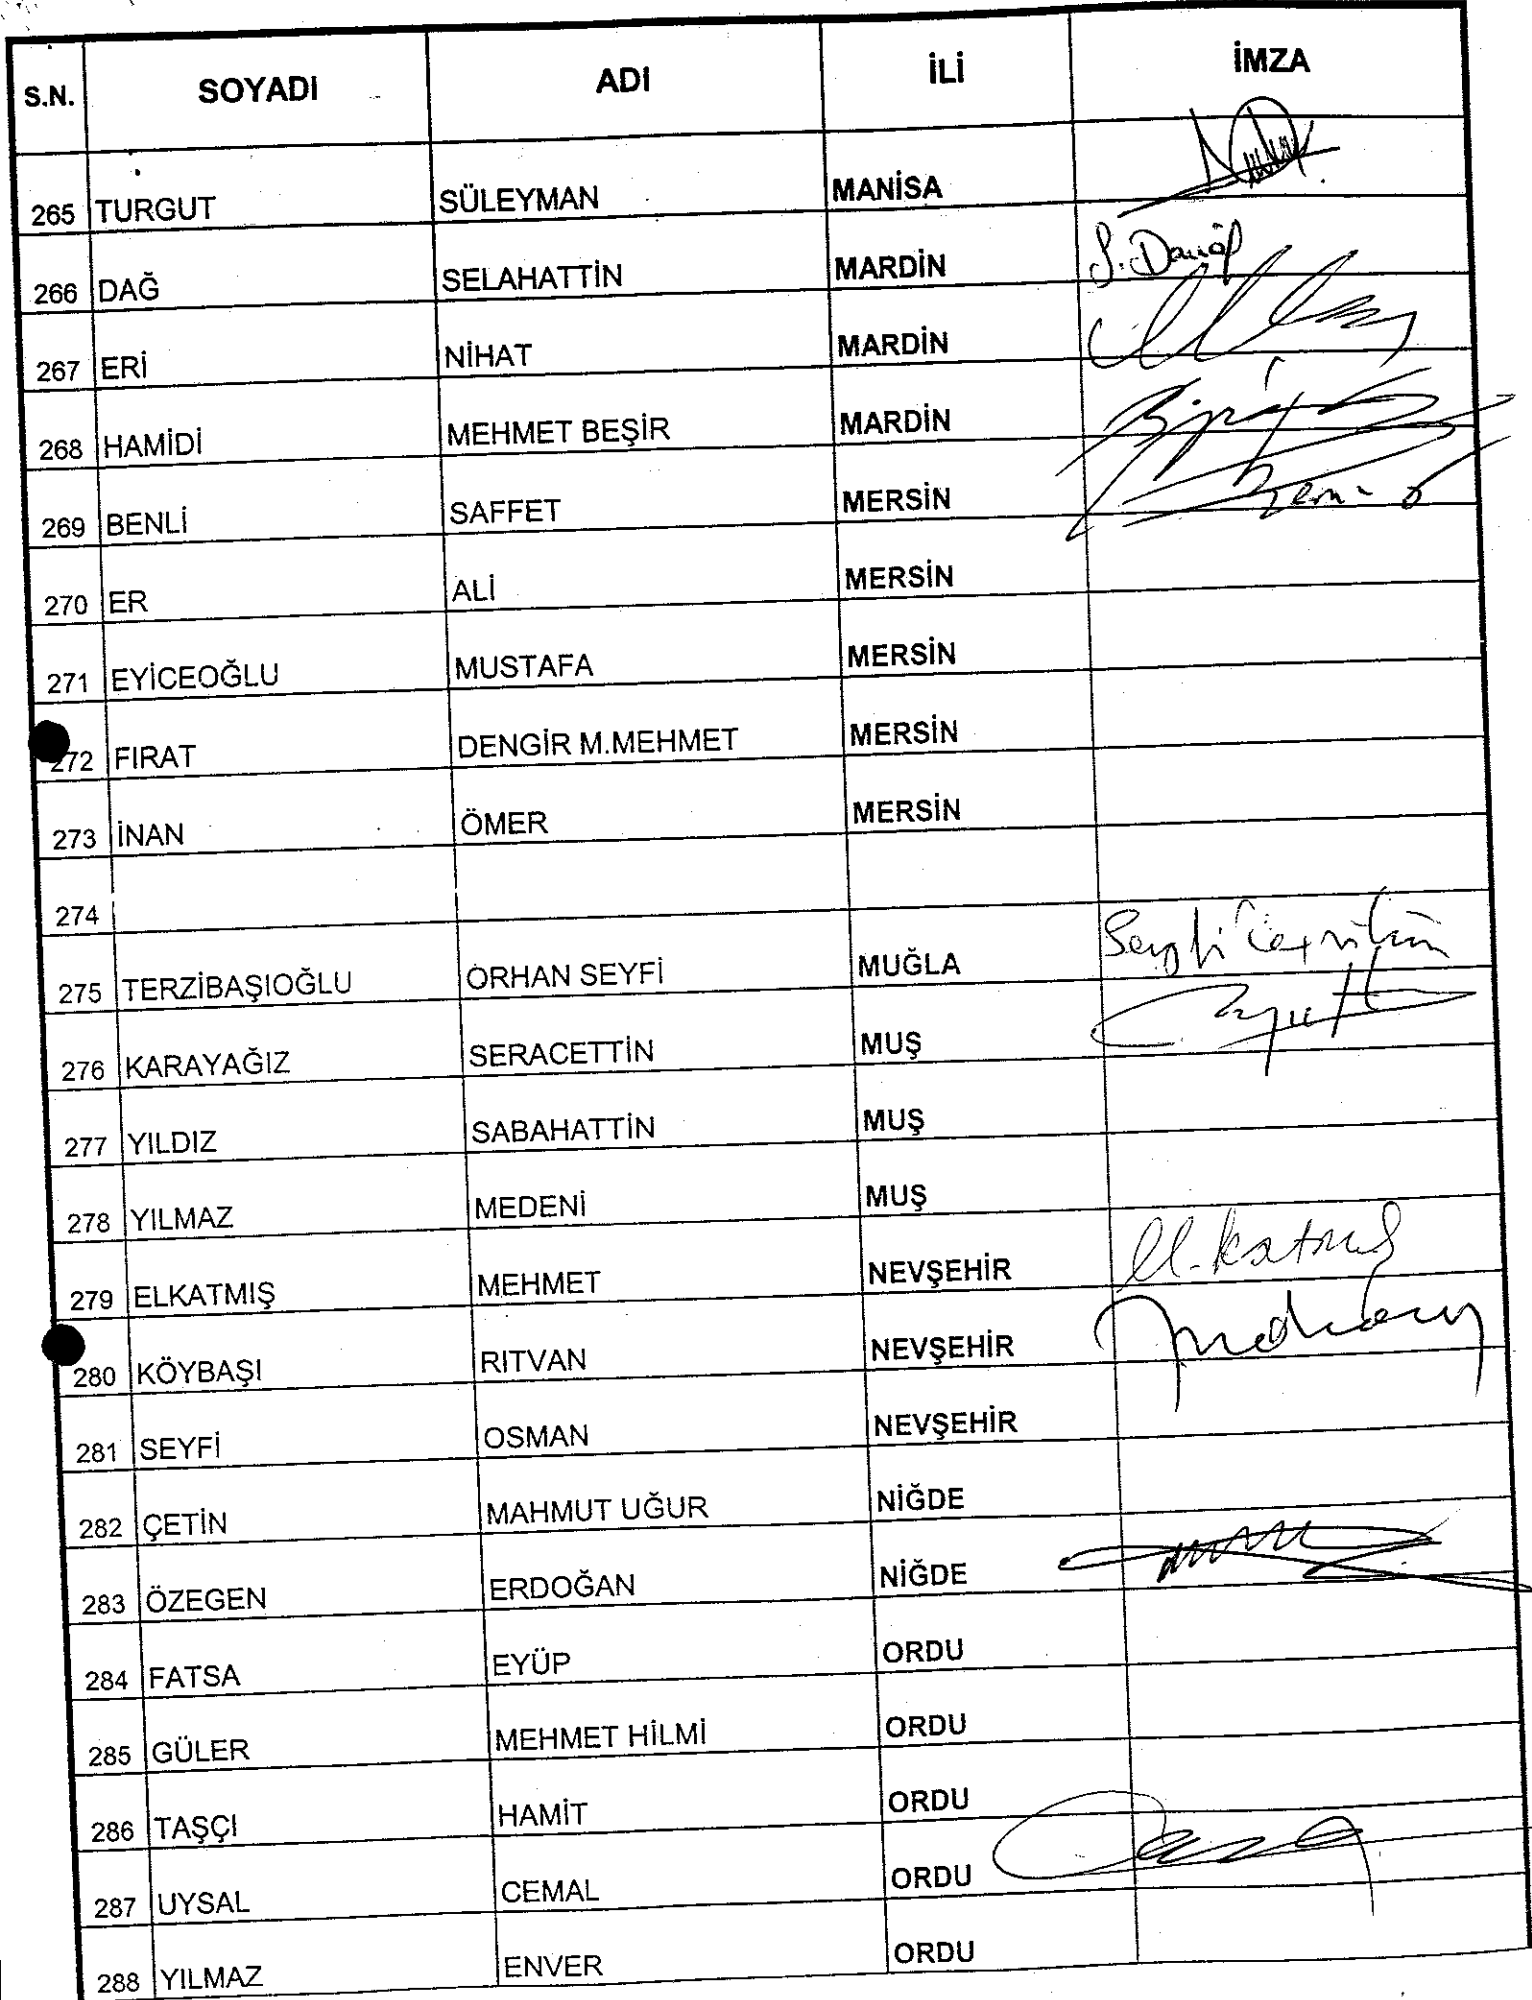 S.N. SOYADI ADI İLİ İMZA
265 TURGUT SÜLEYMAN MANİSA
266 DAĞ SELAHATTİN MARDİN
267 ERİ NİHAT MARDİN
268 HAMİDİ MEHMET BEŞİR MARDİN
269 BENLİ SAFFET MERSİN
270 ER ALİ MERSİN
271 EYİCEOĞLU MUSTAFA MERSİN
272 FIRAT DENGİR M.MEHMET MERSİN
273 İNAN ÖMER MERSİN
274
275 TERZİBAŞIOĞLU ORHAN SEYFİ MUĞLA
276 KARAYAĞIZ SERACETTİN MUŞ
277 YILDIZ SABAHATTİN MUŞ
278 YILMAZ MEDENİ MUŞ
279 ELKATMIŞ MEHMET NEVŞEHİR
280 KÖYBAŞI RITVAN NEVŞEHİR
281 SEYFİ OSMAN NEVŞEHİR
282 ÇETİN MAHMUT UĞUR NİĞDE
283 ÖZEGEN ERDOĞAN NİĞDE
284 FATSA EYÜP ORDU
285 GÜLER MEHMET HİLMİ ORDU
286 TAŞÇI HAMİT ORDU
287 UYSAL CEMAL ORDU
288 YILMAZ ENVER ORDU